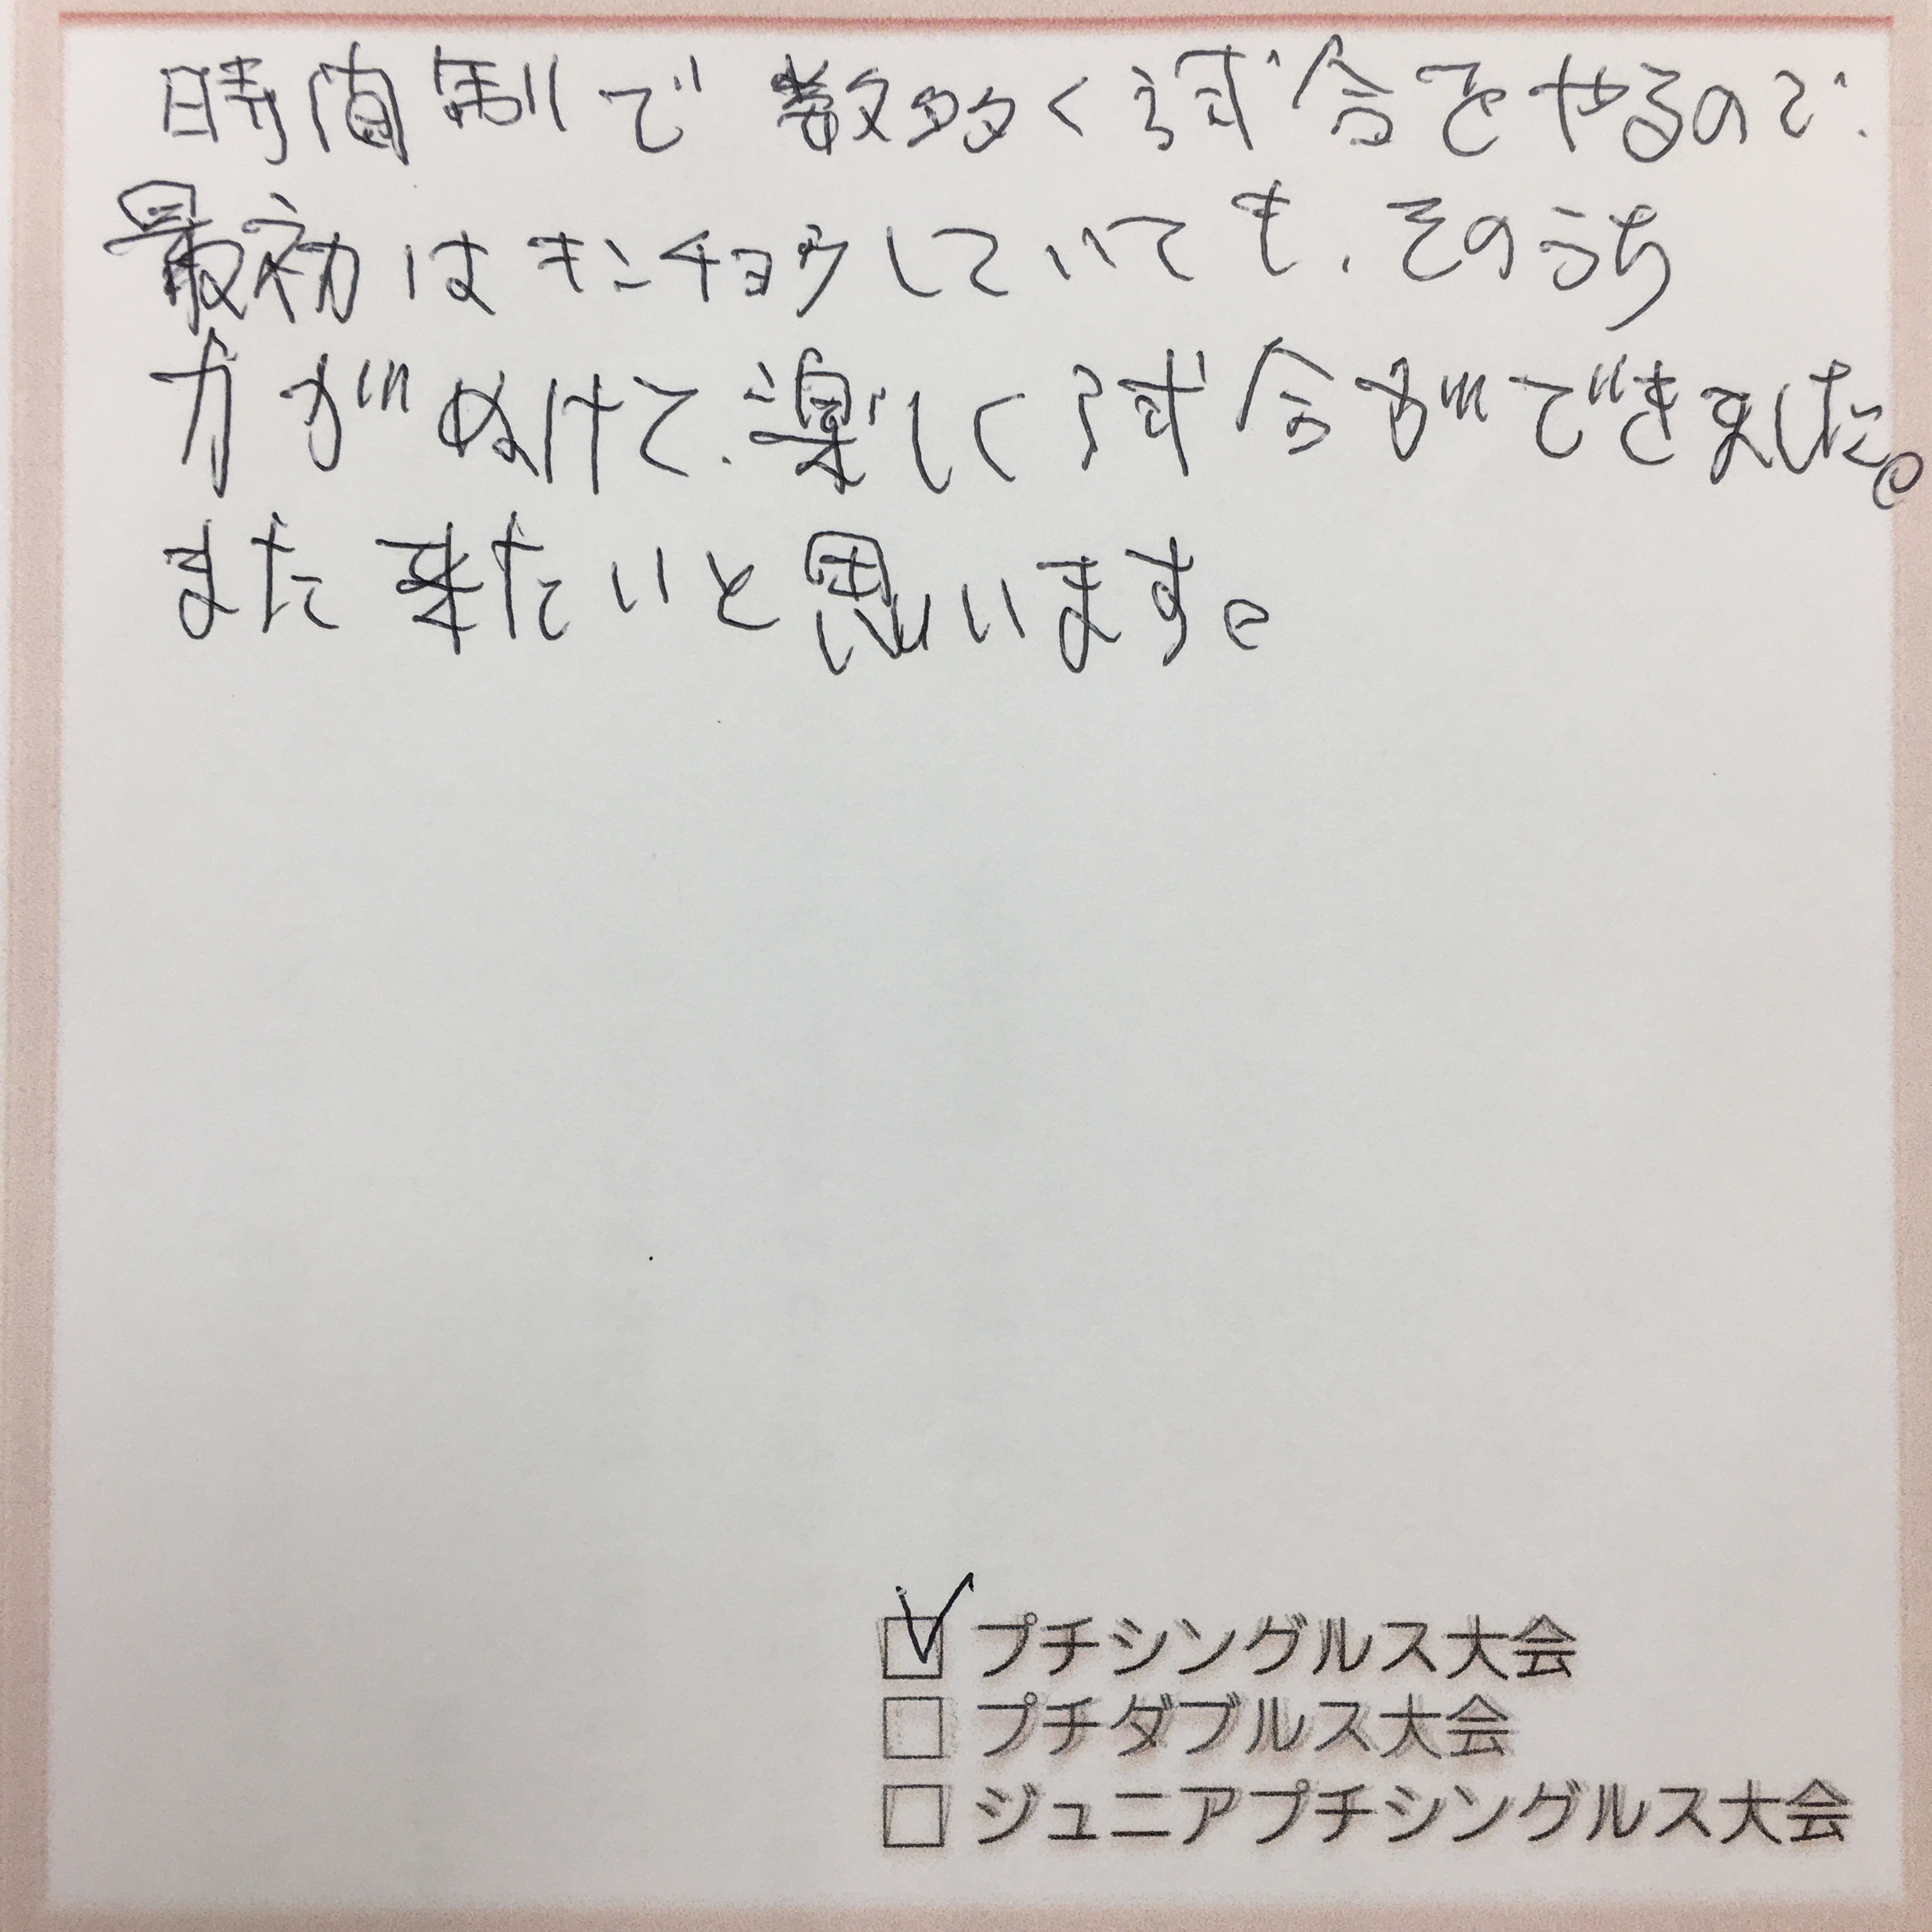 時間制で数多く試合をやるので、
最初はキンチョウしていても、そのうち
力がぬけて、楽しく試合ができました。
また来たいと思います。
☑ プチシングルス大会
☐ プチダブルス大会
☐ ジュニアプチシングルス大会